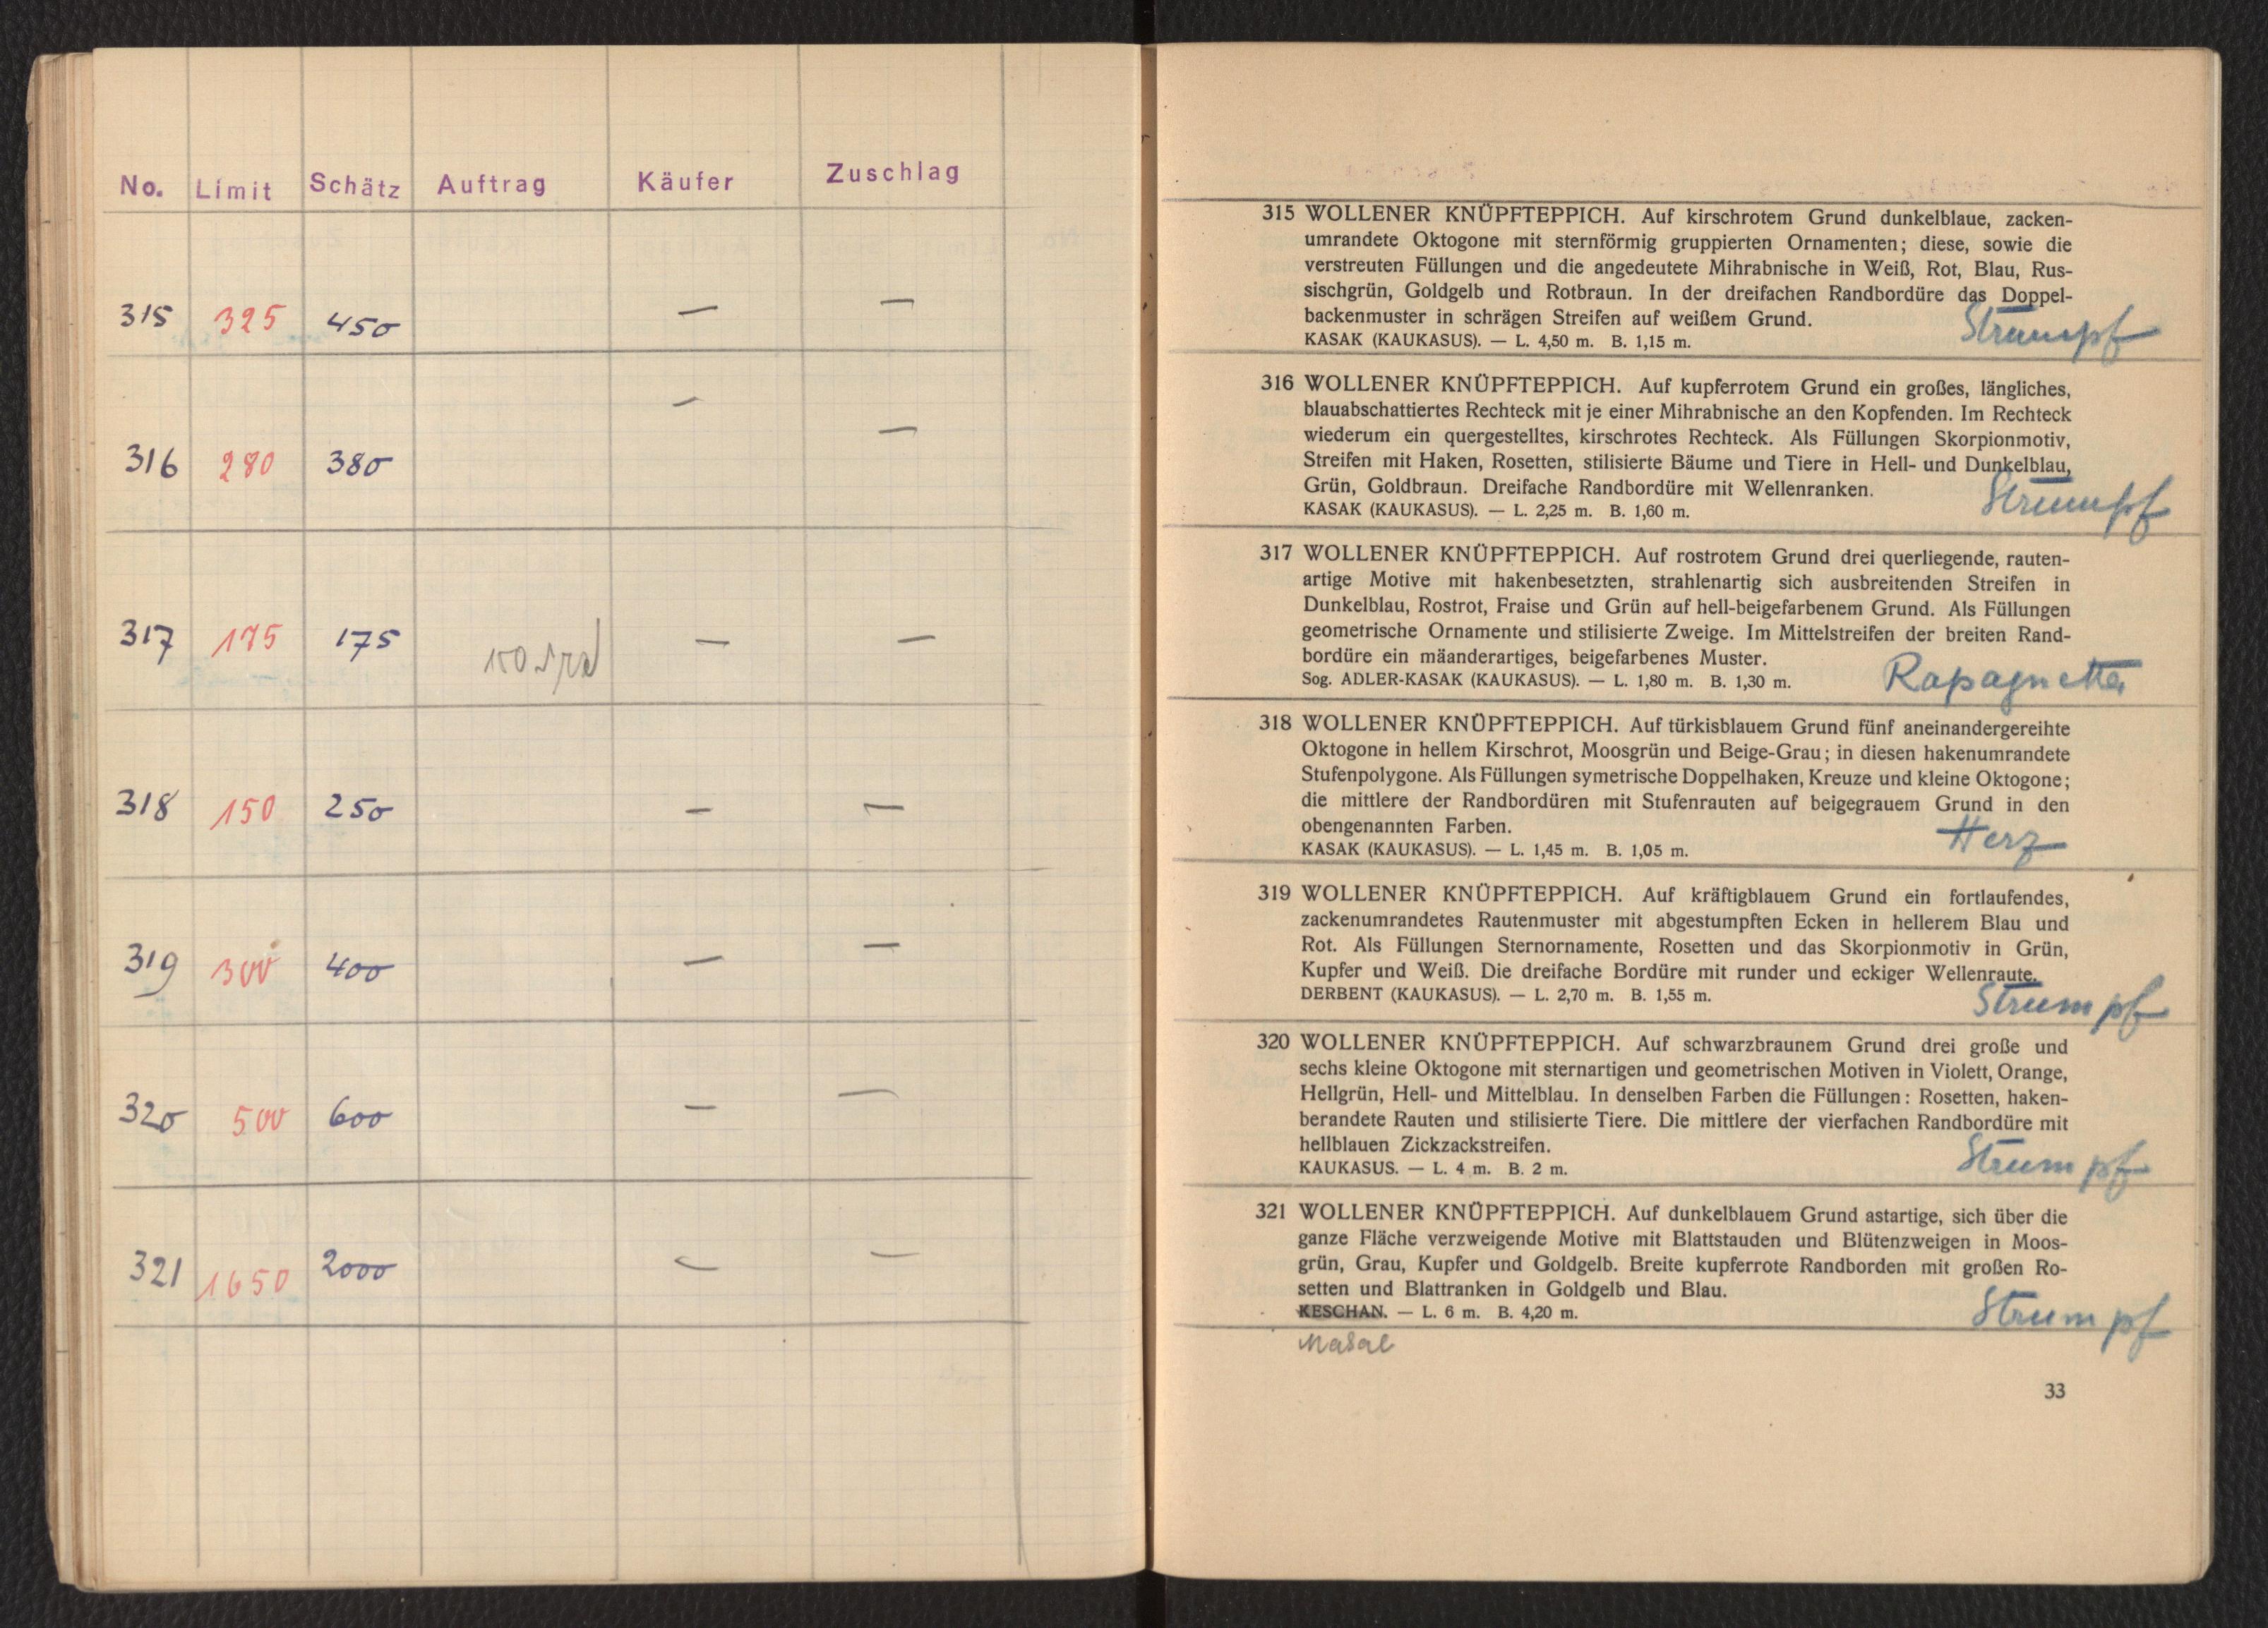 No. Limit Schätz Auftrag Käufer Zuschlag
315 325 450 — —
316 280 380 — —
317 175 175 150 — —
318 150 250 — —
319 300 400 — —
320 500 600 — —
321 1650 2000 — —
315 WOLLENER KNÜPFTEPPICH. Auf kirschrotem Grund dunkelblaue, zacken-
umrandete Oktogone mit sternförmig gruppierten Ornamenten; diese, sowie die
verstreuten Füllungen und die angedeutete Mihrabnische in Weiß, Rot, Blau, Rus-
sischgrün, Goldgelb und Rotbraun. In der dreifachen Randbordüre das Doppel-
backenmuster in schrägen Streifen auf weißem Grund.
KASAK (KAUKASUS). — L. 4,50 m. B. 1,15 m.
Strumpf
316 WOLLENER KNÜPFTEPPICH. Auf kupferrotem Grund ein großes, längliches,
blauabschattiertes Rechteck mit je einer Mihrabnische an den Kopfenden. Im Rechteck
wiederum ein quergestelltes, kirschrotes Rechteck. Als Füllungen Skorpionmotiv,
Streifen mit Haken, Rosetten, stilisierte Bäume und Tiere in Hell- und Dunkelblau,
Grün, Goldbraun. Dreifache Randbordüre mit Wellenranken.
KASAK (KAUKASUS). — L. 2,25 m. B. 1,60 m.
Strumpf
317 WOLLENER KNÜPFTEPPICH. Auf rostrotem Grund drei querliegende, rauten-
artige Motive mit hakenbesetzten, strahlenartig sich ausbreitenden Streifen in
Dunkelblau, Rostrot, Fraise und Grün auf hell-beigefarbenem Grund. Als Füllungen
geometrische Ornamente und stilisierte Zweige. Im Mittelstreifen der breiten Rand-
bordüre ein mäanderartiges, beigefarbenes Muster.
Sog. ADLER-KASAK (KAUKASUS). — L. 1,80 m. B. 1,30 m.
Rapagnetta
318 WOLLENER KNÜPFTEPPICH. Auf türkisblauem Grund fünf aneinandergereihte
Oktogone in hellem Kirschrot, Moosgrün und Beige-Grau; in diesen hakenumrandete
Stufenpolygone. Als Füllungen symetrische Doppelhaken, Kreuze und kleine Oktogone;
die mittlere der Randbordüren mit Stufenrauten auf beigegrauem Grund in den
obengenannten Farben.
KASAK (KAUKASUS). — L. 1,45 m. B. 1,05 m.
Herz
319 WOLLENER KNÜPFTEPPICH. Auf kräftigblauem Grund ein fortlaufendes,
zackenumrandetes Rautenmuster mit abgestumpften Ecken in hellerem Blau und
Rot. Als Füllungen Sternornamente, Rosetten und das Skorpionmotiv in Grün,
Kupfer und Weiß. Die dreifache Bordüre mit runder und eckiger Wellenraute.
DERBENT (KAUKASUS). — L. 2,70 m. B. 1,55 m.
Strumpf
320 WOLLENER KNÜPFTEPPICH. Auf schwarzbraunem Grund drei große und
sechs kleine Oktogone mit sternartigen und geometrischen Motiven in Violett, Orange,
Hellgrün, Hell- und Mittelblau. In denselben Farben die Füllungen: Rosetten, haken-
berandete Rauten und stilisierte Tiere. Die mittlere der vierfachen Randbordüre mit
hellblauen Zickzackstreifen.
KAUKASUS. — L. 4 m. B. 2 m.
Strumpf
321 WOLLENER KNÜPFTEPPICH. Auf dunkelblauem Grund astartige, sich über die
ganze Fläche verzweigende Motive mit Blattstauden und Blütenzweigen in Moos-
grün, Grau, Kupfer und Goldgelb. Breite kupferrote Randborden mit großen Ro-
setten und Blattranken in Goldgelb und Blau.
KESCHAN. — L. 6 m. B. 4,20 m.
Strumpf
Mahal
33